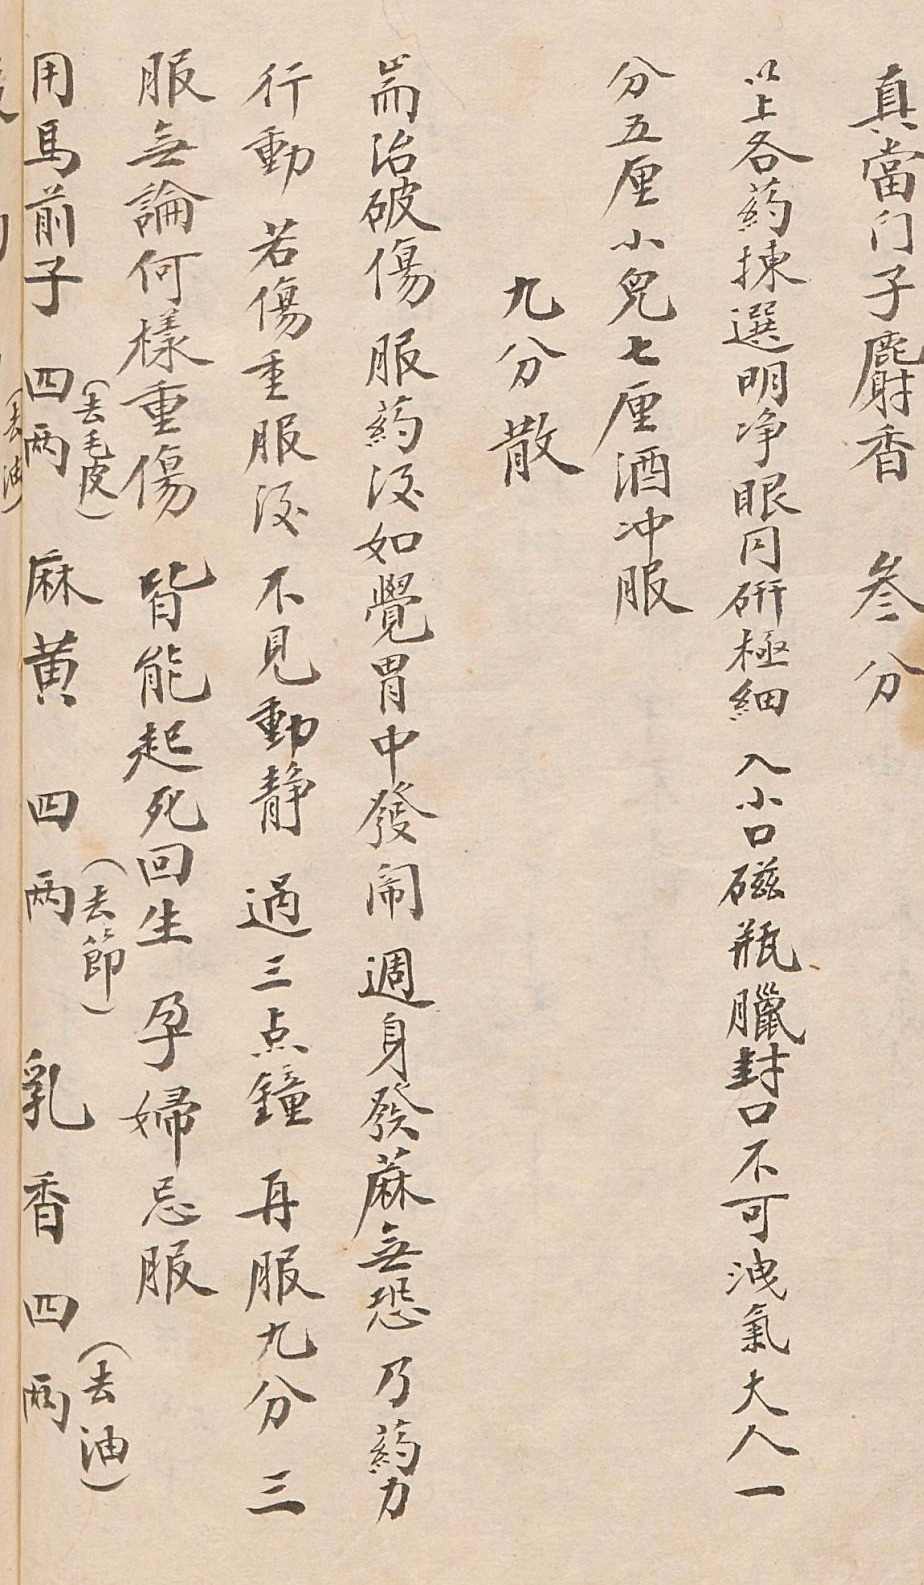 真當门子麝香　叄分
以上各药揀選明净眼同研極細　入小口磁瓶臘封口不可洩氣大人一
分五厘小兒七厘酒冲服
九分散
耑治破傷　服药后如覺胃中發闹　週身發蔴無恐　乃药力
行動　若傷重服后　不見動静　過三点鐘　再服九分　三
服無論何樣重傷　皆能起死回生　孕婦忌服
用馬前子　四两（去毛皮）　麻黄　四两（去節）　乳香　四两（去油）
（去油）